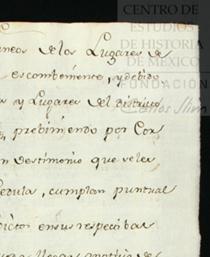 CENTRO DE
ESTUDIOS
DE HISTORIA
DE MEXICO
FUNDACIÓN
Carlos Slim
aneos de los Lugares de
escombenientο, y debido
s y Lugares del distrito
, prebiniendo por Cor
n testimonio que se les
Cedula, cumplan puntual
dictos en sus respectibas